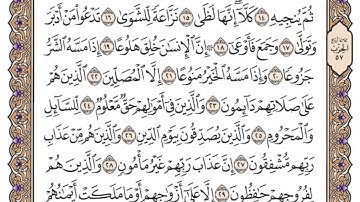 ثُمَّ يُنجِيهِ ١٤ كَلَّآ إِنَّهَا لَظَىٰ ١٥ نَزَّاعَةً لِّلشَّوَىٰ ١٦ تَدْعُوا۟ مَنْ أَدْبَرَ
وَتَوَلَّىٰ ١٧ وَجَمَعَ فَأَوْعَىٰٓ ١٨ ۞ إِنَّ ٱلْإِنسَٰنَ خُلِقَ هَلُوعًا ١٩ إِذَا مَسَّهُ ٱلشَّرُّ
جَزُوعًا ٢٠ وَإِذَا مَسَّهُ ٱلْخَيْرُ مَنُوعًا ٢١ إِلَّا ٱلْمُصَلِّينَ ٢٢ ٱلَّذِينَ هُمْ
عَلَىٰ صَلَاتِهِمْ دَآئِمُونَ ٢٣ وَٱلَّذِينَ فِىٓ أَمْوَٰلِهِمْ حَقٌّ مَّعْلُومٌ ٢٤ لِّلسَّآئِلِ
وَٱلْمَحْرُومِ ٢٥ وَٱلَّذِينَ يُصَدِّقُونَ بِيَوْمِ ٱلدِّينِ ٢٦ وَٱلَّذِينَ هُم مِّنْ عَذَابِ
رَبِّهِم مُّشْفِقُونَ ٢٧ إِنَّ عَذَابَ رَبِّهِمْ غَيْرُ مَأْمُونٍ ٢٨ وَٱلَّذِينَ هُمْ
لِفُرُوجِهِمْ حَٰفِظُونَ ٢٩ إِلَّا عَلَىٰٓ أَزْوَٰجِهِمْ أَوْ مَا مَلَكَتْ أَيْمَٰنُهُمْ
الحزب
٥٧